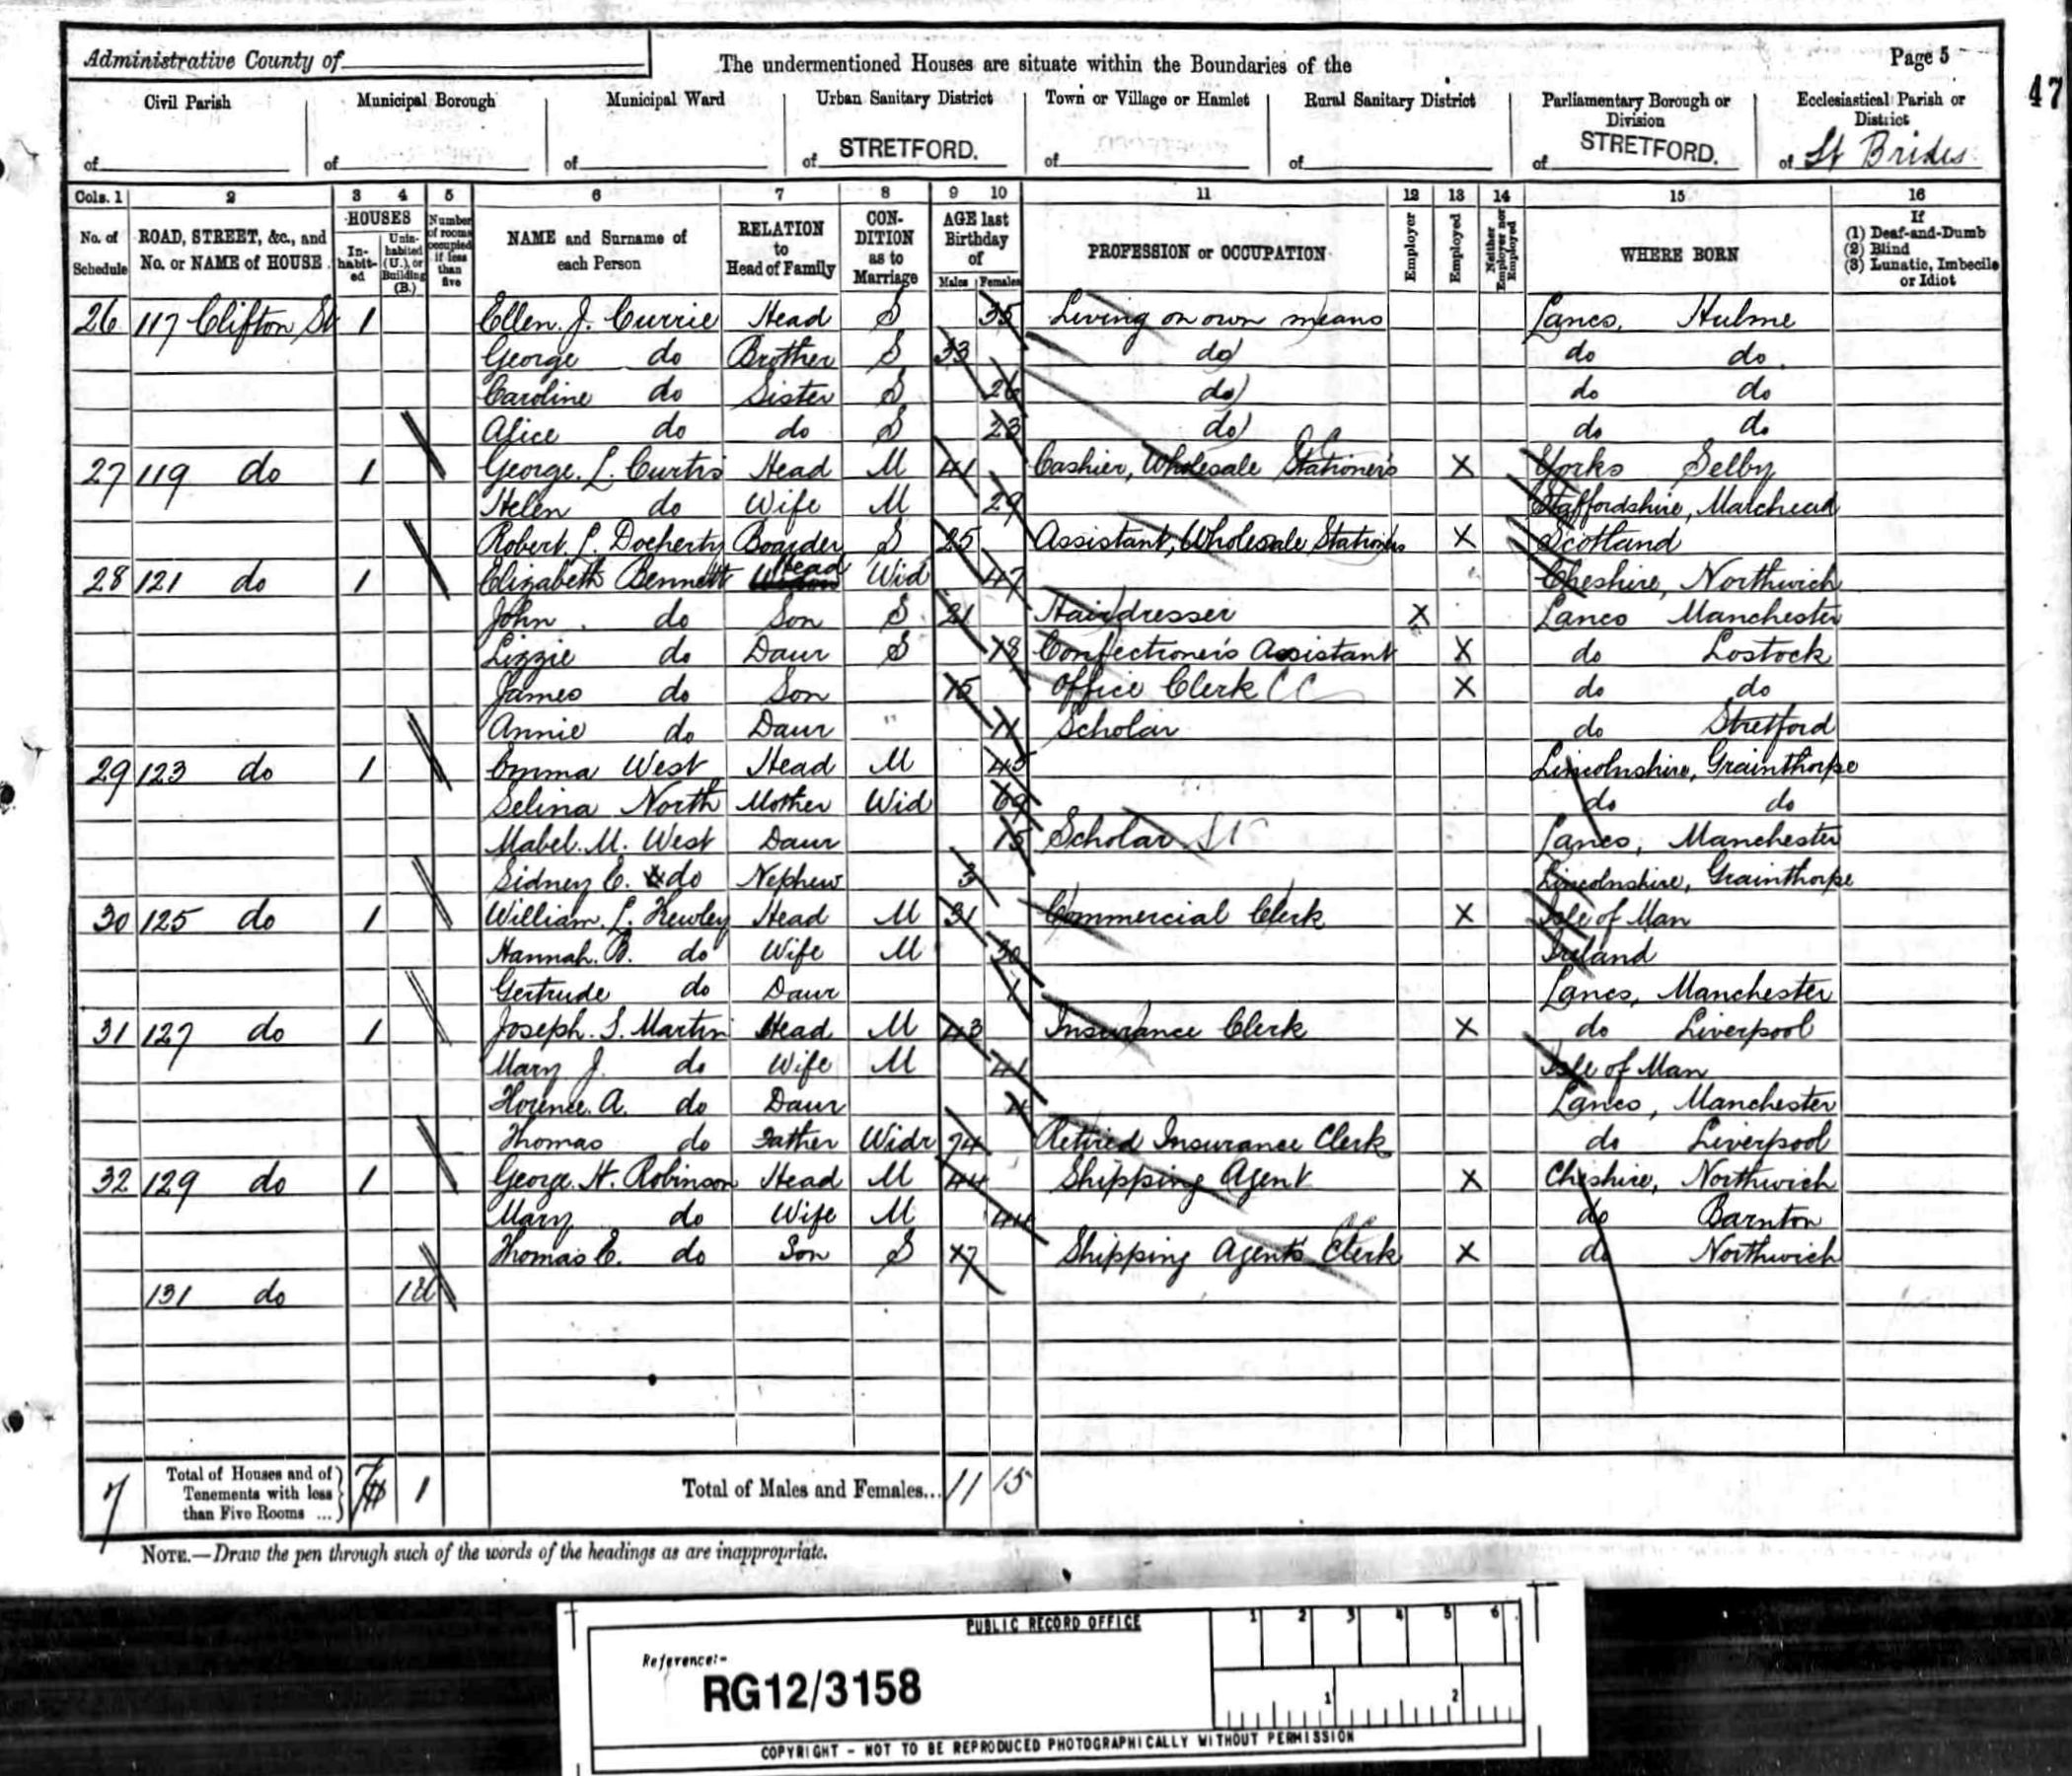 Administrative County of
The undermentioned Houses are situate within the Boundaries of the
Page 5
47
Civil Parish
of
Municipal Borough
of
Municipal Ward
of
Urban Sanitary District
of STRETFORD.
Town or Village or Hamlet
of
Rural Sanitary District
of
Parliamentary Borough or Division
of STRETFORD.
Ecclesiastical Parish or District
of St Brides
Cols. 1 2 3 4 5 6 7 8 9 10 11 12 13 14 15 16
No. of Schedule
ROAD, STREET, &c., and No. or NAME of HOUSE
HOUSES
In-habit-ed
Unin-habited (U.), or Building (B.)
Number of rooms occupied if less than five
NAME and Surname of each Person
RELATION to Head of Family
CON-DITION as to Marriage
AGE last Birthday of
Males Females
PROFESSION or OCCUPATION
Employer
Employed
Neither Employer nor Employed
WHERE BORN
If
(1) Deaf-and-Dumb
(2) Blind
(3) Lunatic, Imbecile or Idiot
26 117 Clifton St 1 Ellen. J. Currie Head S 35 Living on own means Lancs. Hulme
George do Brother S 33 do do do
Caroline do Sister S 26 do do do
Alice do do S 23 do do do
27 119 do 1 George. L. Curtis Head M 41 Cashier, Wholesale Stationers X Yorks Selby
Helen do Wife M 29 Staffordshire,
Robert. L. Docherty Boarder S 25 Assistant, Wholesale Stationers X Scotland
28 121 do 1 Elizabeth Bennett Head Wid 47 Cheshire, Northwich
John do Son S 21 Hairdresser X Lancs Manchester
Lizzie do Daur S 18 Confectioner's Assistant X do Lostock
James do Son 15 Office Clerk CC X do do
Annie do Daur " 11 Scholar do Stretford
29 123 do 1 Emma West Head M 45 Lincolnshire, Grainthorpe
Selina North Mother Wid 69 do do
Mabel. M. West Daur 15 Scholar Lancs, Manchester
Sidney E. do Nephew 3 Lincolnshire, Grainthorpe
30 125 do 1 William. L. Kewley Head M 31 Commercial Clerk X Isle of Man
Hannah. B. do Wife M 30 Ireland
Gertrude do Daur 1 Lancs, Manchester
31 127 do 1 Joseph. S. Martin Head M 43 Insurance Clerk X do Liverpool
Mary J. do Wife M 41 Isle of Man
Florence. A. do Daur 4 Lancs, Manchester
Thomas do Father Widr 74 Retired Insurance Clerk do Liverpool
32 129 do 1 George. H. Robinson Head M 44 Shipping Agent X Cheshire, Northwich
Mary do Wife M 44 do Barnton
Thomas E. do Son S 17 Shipping Agents Clerk X do Northwich
131 do 1U
7
Total of Houses and of Tenements with less than Five Rooms ...
7 1
Total of Males and Females... 11 15
NOTE.—Draw the pen through such of the words of the headings as are inappropriate.
PUBLIC RECORD OFFICE
1 2 3 4 5 6
Reference:-
RG12/3158
1 2
COPYRIGHT - NOT TO BE REPRODUCED PHOTOGRAPHICALLY WITHOUT PERMISSION